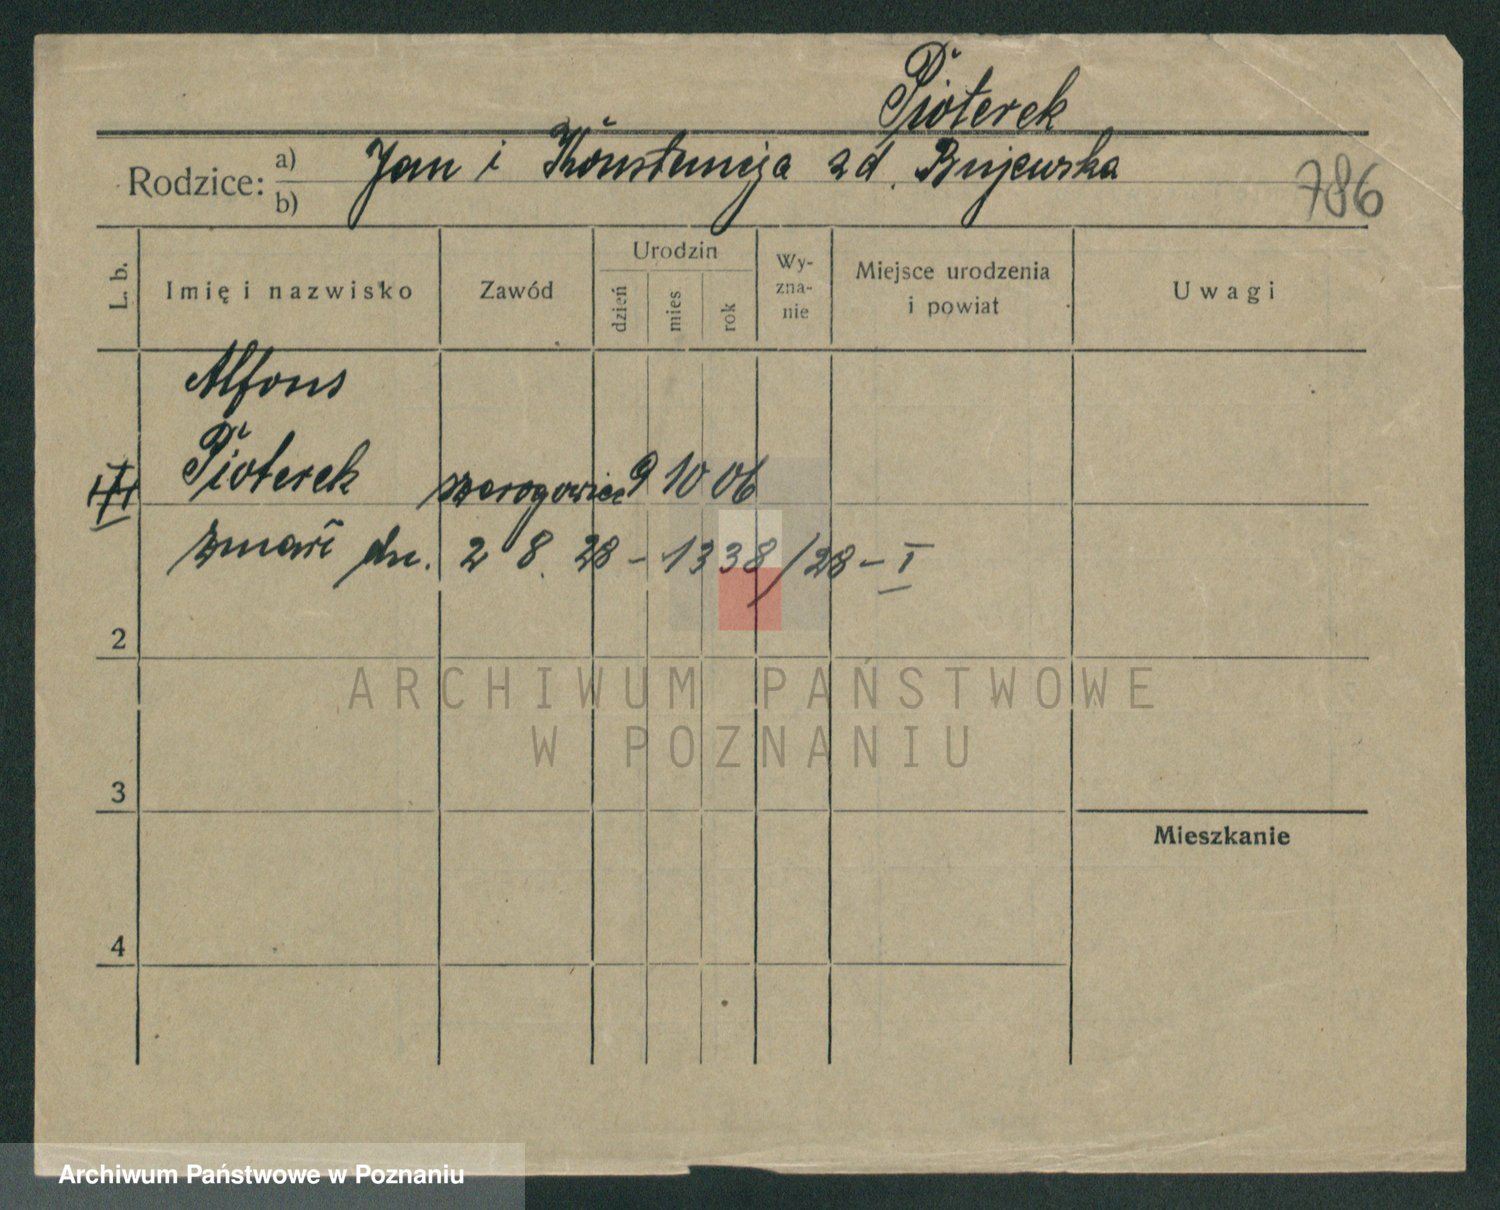 Pioterek
Rodzice: a) Jan i Konstancja zd. Bujewska
b)
786
L. b.
Imię i nazwisko
Zawód
Urodzin
dzień
mies
rok
Wy-
zna-
nie
Miejsce urodzenia
i powiat
Uwagi
Alfons
Pioterek 9 10 06
zmarł dn. 2 8. 28 - 1338/28 - I
2
ARCHIWUM PAŃSTWOWE
W POZNANIU
3
Mieszkanie
4
Archiwum Państwowe w Poznaniu